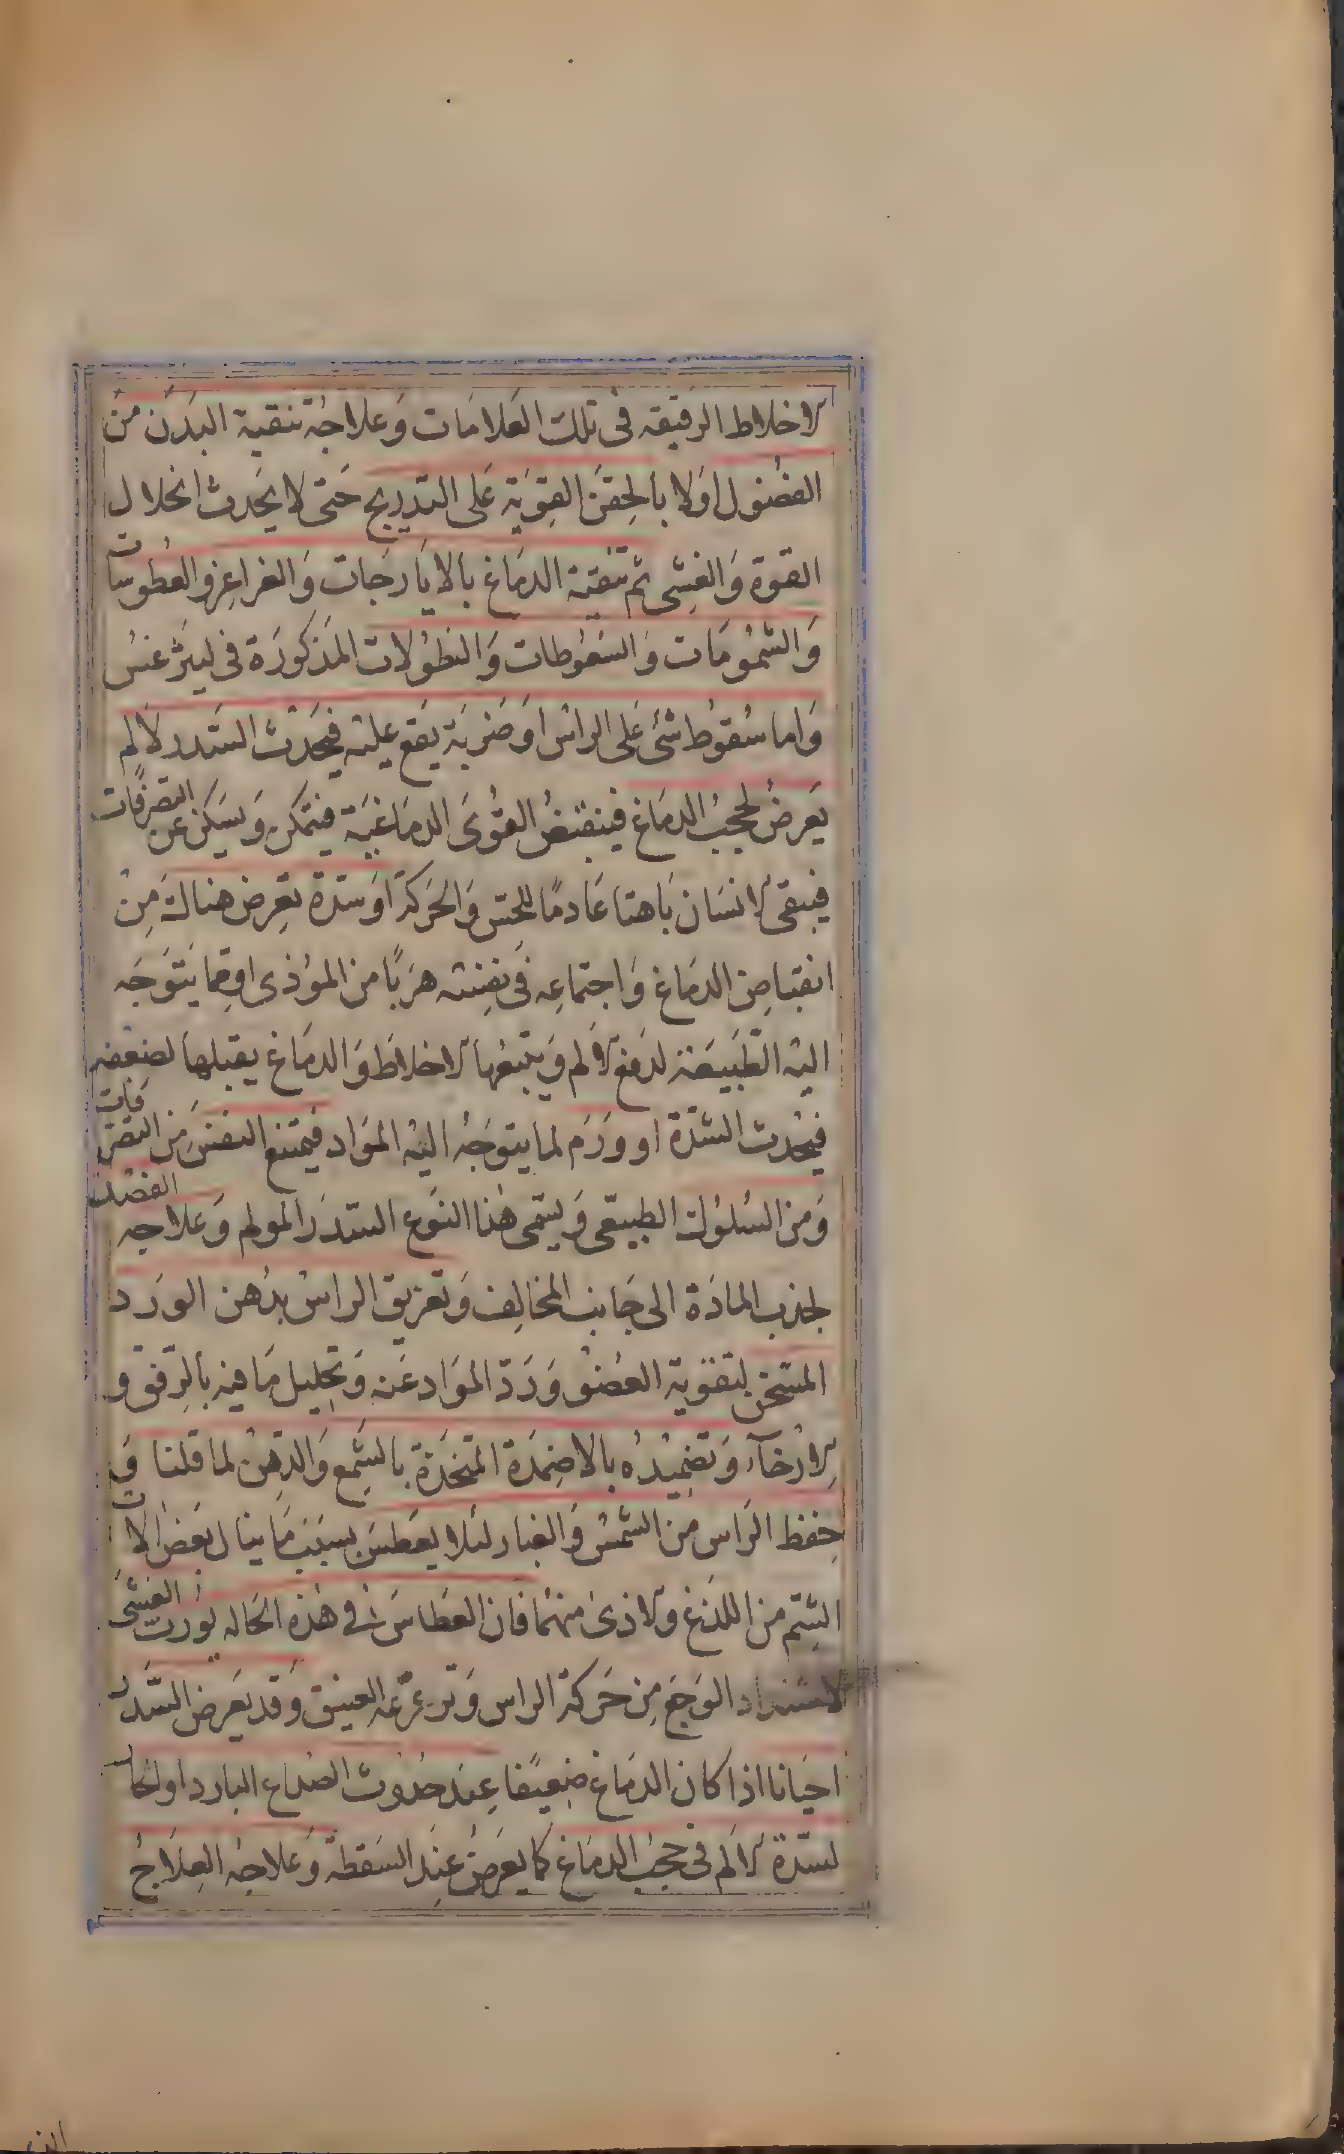 الاخلاط الرقيقه فى تلك العَلامَات وَعلاجهُ تنقية البَدَن منَ
الفضُول اوَلا بالحِقَن القوّية عَلى التدريج حَتى لا يحَدث انحلال
القوة وَالغشِى ثم تنقية الدمَاغ بالايَارجَات وَالغراغِر والعطُوسَات
وَالشمُومَات وَالسَعُوطات وَالنطوُلات المذكورَة فى ليثرغس
وَاما سُقوُط شئ عَلى الراسُ اوَ ضَربَة يقع عليْه فيحَدث السَّدر لالم
يَعرضُ لحجبُ الدمَاغ فينقبضُ القوُىَ الدمَاغيَة فيتمكن وَيسَكن عن التصرفات
فيبقى الانسَان بَاهتا عَادمًا للحسّ وَالحَركة اوَ سَدّة يعَرِض هناك مِنَ
انقباضِ الدمَاغ وَاجتماعِه فى نفسِه هرَبًا من الموُذى اومما يتَوَجَه
اليْه الطَبيعَة لدفع الالم وَيتبعُها الاخلاط وَالدمَاغ يقبلها لضعفه
فيحْدث السّدّة او ورَم لما يتوجَهُ اليْه الموَاد فيمتنع النفسَ مِن التصرفات
وَمن السُلوُك الطبيعى وَيسَمى هٰذا النوَع السَدرَ المولم وَعلاجه الفصْد
لجذب المادَة الى جَانب المخالِف وَتعريق الراسُ بدُهن الورَد
المسَخن لتقوية العُضوْ وَرَدّ الموَاد عَنه وَتحِليل مَا فيه بالرفق و
الارْخَاء وَتضميْدُه بالاضمدَة المتخذة بالشَمع وَالدهنْ لما قلنا وَ
حِفظ الرَاس منَ الشَمسُ وَالغبار لئلا يعَطسَ بسَبَب مَا ينال بعَض الات
الشمّ من اللذع والاذىٰ منهُما فان العطَاسَ فى هٰذه الحَاله يوُرث الغشىَ
لاشتداد الوَجع مِن حَركة الراس وَتزعزعه العنيف وَقد يعَرض السَّدر
احيَانا اذا كان الدمَاغ ضعِيفا عِند حدُوث الصُداع البارد او الحار
لشدّة الالم فى حجبُ الدمَاغ كما يعَرضُ عِندَ السَقطة وَعلاجهُ العِلاجُ